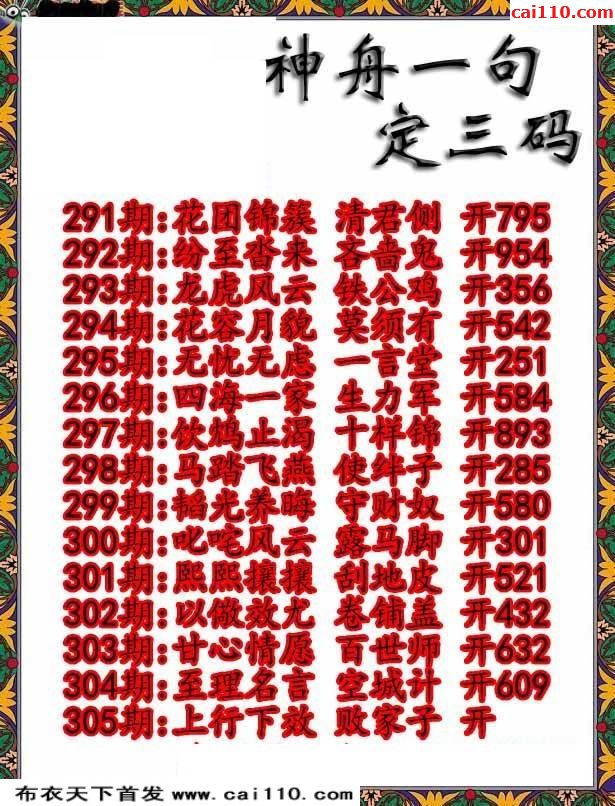 cai110.com
神舟一句
定三码
291期:花团锦簇 清君侧 开795
292期:纷至沓来 吝啬鬼 开954
293期:龙虎风云 铁公鸡 开356
294期:花容月貌 莫须有 开542
295期:无忧无虑 一言堂 开251
296期:四海一家 生力军 开584
297期:饮鸩止渴 十样锦 开893
298期:马踏飞燕 使绊子 开285
299期:韬光养晦 守财奴 开580
300期:叱咤风云 露马脚 开301
301期:熙熙攘攘 刮地皮 开521
302期:以儆效尤 卷铺盖 开432
303期:甘心情愿 百世师 开632
304期:至理名言 空城计 开609
305期:上行下效 败家子 开
布衣天下首发 www.cai110.com